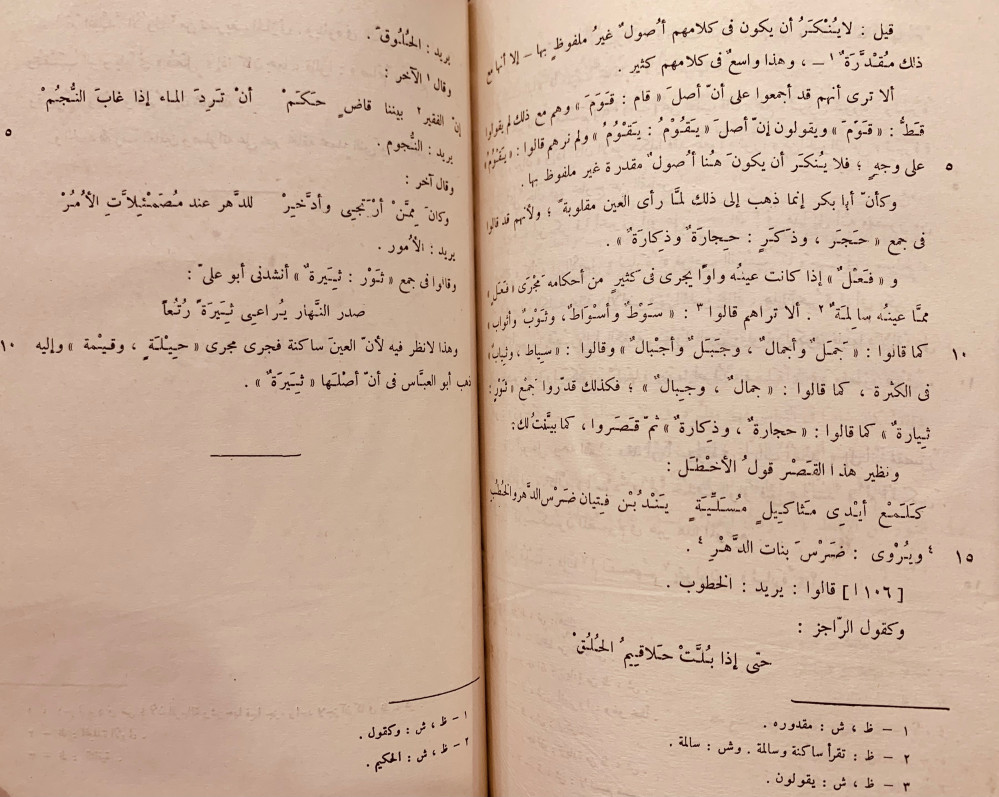 قيل : لا يُنْكَرُ أن يكون فى كلامهم أُصولٌ غيرُ ملفوظٍ بها – إلا أنها مع
ذلك مُقَدَّرَةٌ ١ – ، وهذا واسعٌ فى كلامهم كثير .
ألا ترى أنهم قد أجمعوا على أنّ أصلَ « قام : قَوَمَ » وهم مع ذلك لم يقولوا
قَطُّ : « قَوَمَ » ويقولون إنّ أصلَ « يَقُوْمُ : يَقْوُمُ » ولم نرهم قالوا : « يَقْوُمُ »
على وجهٍ ؛ فلا يُنكَر أن يكونَ هُنا أُصولٌ مقدرة غير ملفوظ بها .
٥
وكأنّ أبا بكر إنما ذهب إلى ذلك لمَّا رأى العين مقلوبةً ؛ ولأنهم قد قالوا
فى جمع « حَجَر ، وذَكَرٍ : حِجارَةٌ وذِكارَةٌ » .
و « فَعْلٌ » إذا كانت عينُه واوًا يجرى فى كثيرٍ من أحكامه مَجْرَى « فَعَلٍ »
ممَّا عينُه سالِمَةٌ ٢ . ألا تراهم قالوا ٣ : « سَوْطٌ وأسْوَاطٌ ، وثَوْبٌ وأثواب »
كما قالوا : « جَمَلٌ وأجمالٌ ، وجَبَلٌ وأجْبالٌ » وقالوا : « سِياط ، وثِيابٌ »
١٠
فى الكثرة ، كما قالوا : « جمالٌ ، وجِبالٌ » ؛ فكذلك قدّروا جَمْع « ثَوْرٍ :
ثِيارةٌ » كما قالوا : « حجارةٌ ، وذِكارةٌ » ثمّ قَصَروا ، كما بيَّنتُ لك :
ونظير هذا القَصْر قولُ الأخْطَل :
كَلَمْعِ أيْدِى مَثاكِيلٍ مُسَلِّبَةٍ يَنْدُبْن فِتيان ضَرْس الدهر والخُطُبِ
٤ ويُرْوى : ضَرْسَ بنات الدَّهْرِ ٤ .
١٥
[ ١٠٦ ا ] قالوا : يريد : الخطوب .
وكقول الرّاجز :
حتّى إذا بُلَّتْ حَلاقِيمُ الحُلُقْ
١ – ظ ، ش : مقدوره .
٢ – ظ : تقرأ ساكنة وسالمة . وش : سالمة .
٣ – ظ ، ش : يقولون .
يريد : الحُلُوقَ .
وقال ١ الآخر :
إنّ الفقيرَ ٢ بيننا قاضٍ حَكَمْ أنْ تَرِدَ الماء إذا غابَ النُّجُمْ
يريد : النُّجوم .
٥
وقال آخر :
وكانَ مِمَّنْ أرْتَجِى وأدَّخِرْ للدَّهر عند مُصْمَئِلاَّتِ الأُمُرْ
يريد : الأُمور .
وقالوا فى جمع « ثَوْر : ثِيَرةٌ » أنشدنى أبو علىّ :
صدر النَّهار يُراعِى ثِيَرَةً رُتُعاً
وهذا لا نظر فيه لأنّ العينَ ساكنة فجرى مجرى « حِيْلَةٍ ، وقِيْمة » وإليه
١٠
ذهب أبو العبَّاس فى أنّ أصْلَها « ثِيْرَةٌ » .
١ – ظ ، ش : وكقول .
٢ – ظ ، ش : الحكيم .